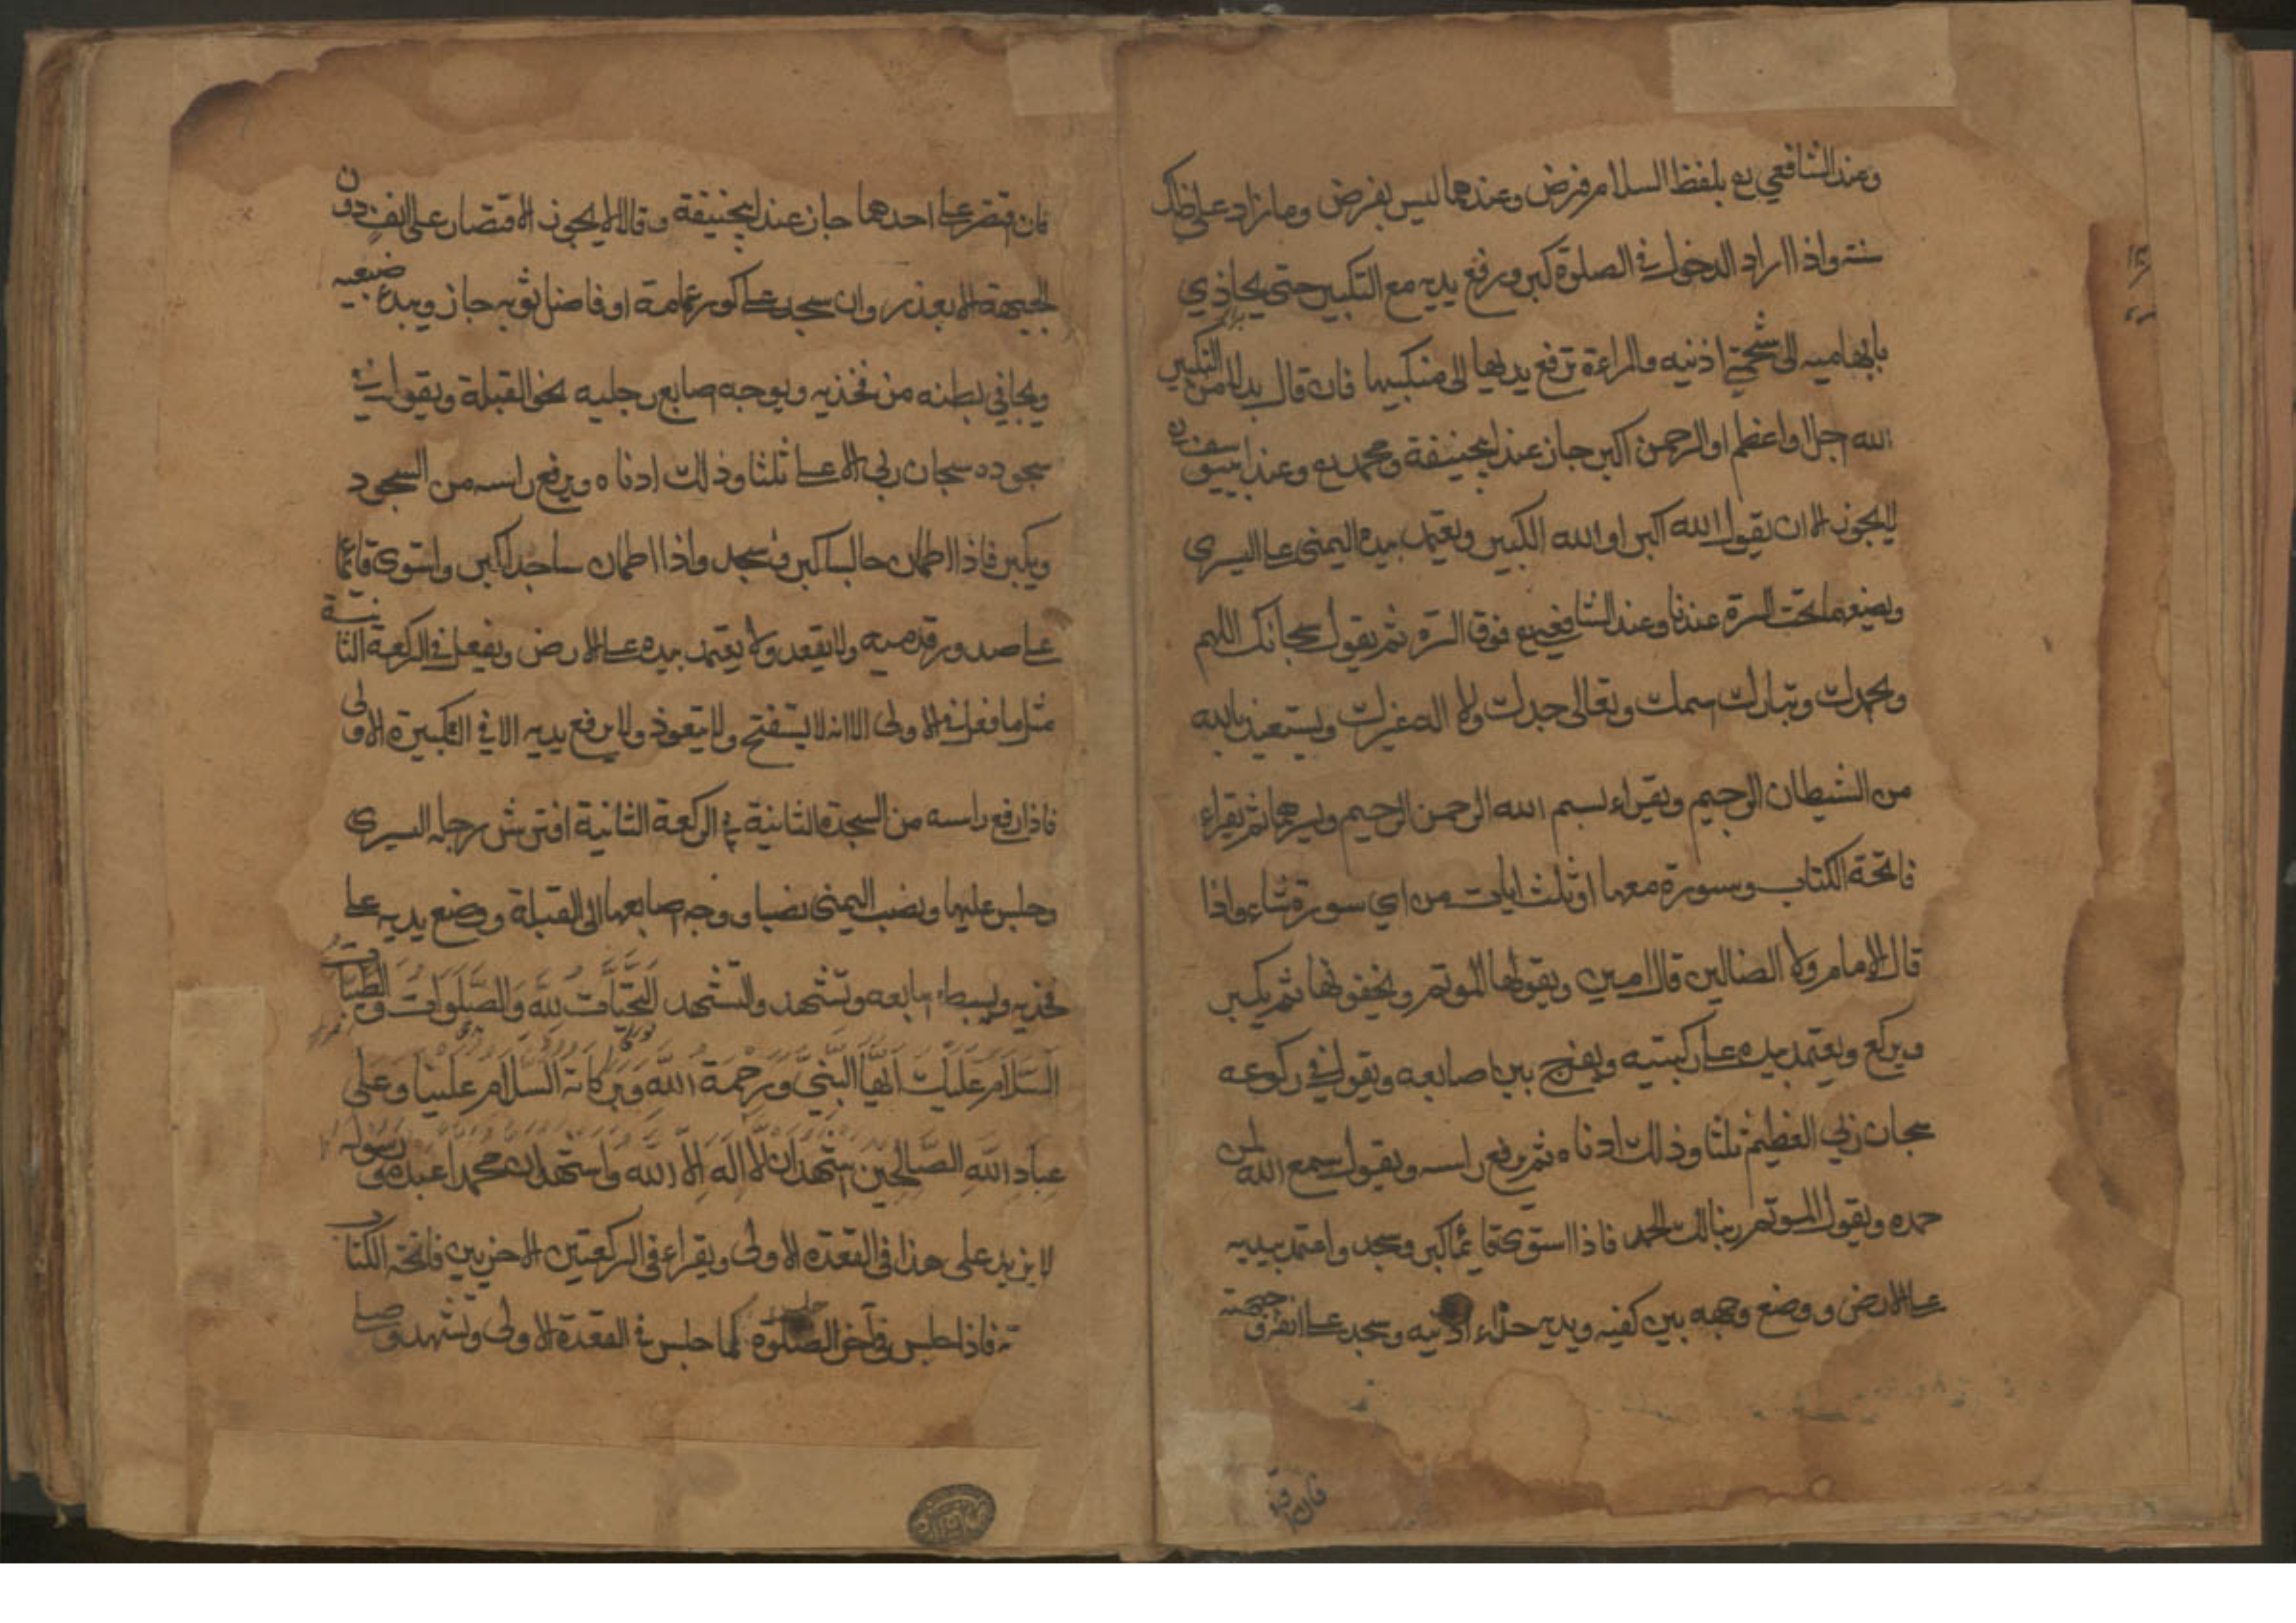 وعند الشافعي رح بلفظ السلام فرض وعندهما ليس بفرض وما زاد على ذلك
سنة واذا اراد الدخول في الصلوة كبر ورفع يديه مع التكبير حتى يحاذي
بابهاميه الى شحمتي اذنيه والمراءة ترفع يديها الى منكبيها فان قال بدلا من التكبير
الله اجل او اعظم او الرحمن اكبر جاز عند ابيحنيفة ومحمد رح وعند ابييوسف رح
لا يجوز الا ان يقول الله اكبر او الله الكبير ويعتمد بيده اليمنى على اليسرى
ويضعهما تحت السرة عندنا وعند الشافعي رح فوق السرة ثم يقول سبحانك اللهم
وبحمدك وتبارك اسمك وتعالى جدك ولا اله غيرك ويستعيذ بالله
من الشيطان الرجيم ويقراء بسم الله الرحمن الرحيم ويسرهما ثم يقراء
فاتحة الكتاب وسورة معها او ثلث ايات من اي سورة شاء واذا
قال الامام ولا الضالين قال امين ويقولها الموتم ويخفونها ثم يكبر
ويركع ويعتمد بيده على ركبتيه ويفرج بين اصابعه ويقول في ركوعه
سبحان ربي العظيم ثلثا وذلك ادناه ثم يرفع راسه ويقول سمع الله لمن
حمده ويقول الموتم ربنا لك الحمد فاذا استوى قائما كبر وسجد واعتمد بيديه
على الارض ووضع وجهه بين كفيه ويديه حذاء اذنيه وسجد على انفه وجبهته
فان اقتصر
فان اقتصر على احدهما جاز عند ابيحنيفة وقالا لا يجوز الاقتصار على الانف دون
الجبهة الا بعذر وان سجد على كور عمامة او فاضل ثوبه جاز ويبدء ضبعيه
ويجافي بطنه من فخذيه ويوجه اصابع رجليه نحو القبلة ويقول في
سجوده سبحان ربي الاعلى ثلثا وذلك ادناه ويرفع راسه من السجود
ويكبر فاذا اطمان جالسا كبر وسجد واذا اطمان ساجدا كبر واستوى قائما
على صدور قدميه ولا يقعد ولا يعتمد بيده على الارض ويفعل في الركعة الثانية
مثل ما فعل في الاولى الا انه لا يستفتح ولا يتعوذ ولا يرفع يديه الا في التكبيرة الاولى
فاذا رفع راسه من السجدة الثانية في الركعة الثانية افترش رجله اليسرى
وجلس عليها ونصب اليمنى نصبا ووجه اصابعها الى القبلة ووضع يديه على
فخذيه ويبسط اصابعه وتشهد والتشهد اَلتَّحِيَّاتُ لِلَّهِ وَالصَّلَوَاتُ وَالطَّيِّبَاتُ
اَلسَّلَامُ عَلَيْكَ اَيُّهَا النَّبِيُّ وَرَحْمَةُ اللَّهِ وَبَرَكَاتُهُ اَلسَّلَامُ عَلَيْنَا وَعَلَى
عِبَادِ اللَّهِ الصَّالِحِينَ اَشْهَدُ اَنْ لَا اِلَهَ اِلَّا اللَّهُ وَاَشْهَدُ اَنَّ مُحَمَّدًا عَبْدُهُ وَرَسُولُهُ
لا يزيد على هذا في القعدة الاولى ويقراء في الركعتين الاخريين فاتحة الكتاب
فاذا جلس في آخر الصلوة كما جلس في القعدة الاولى وتشهد وصلى